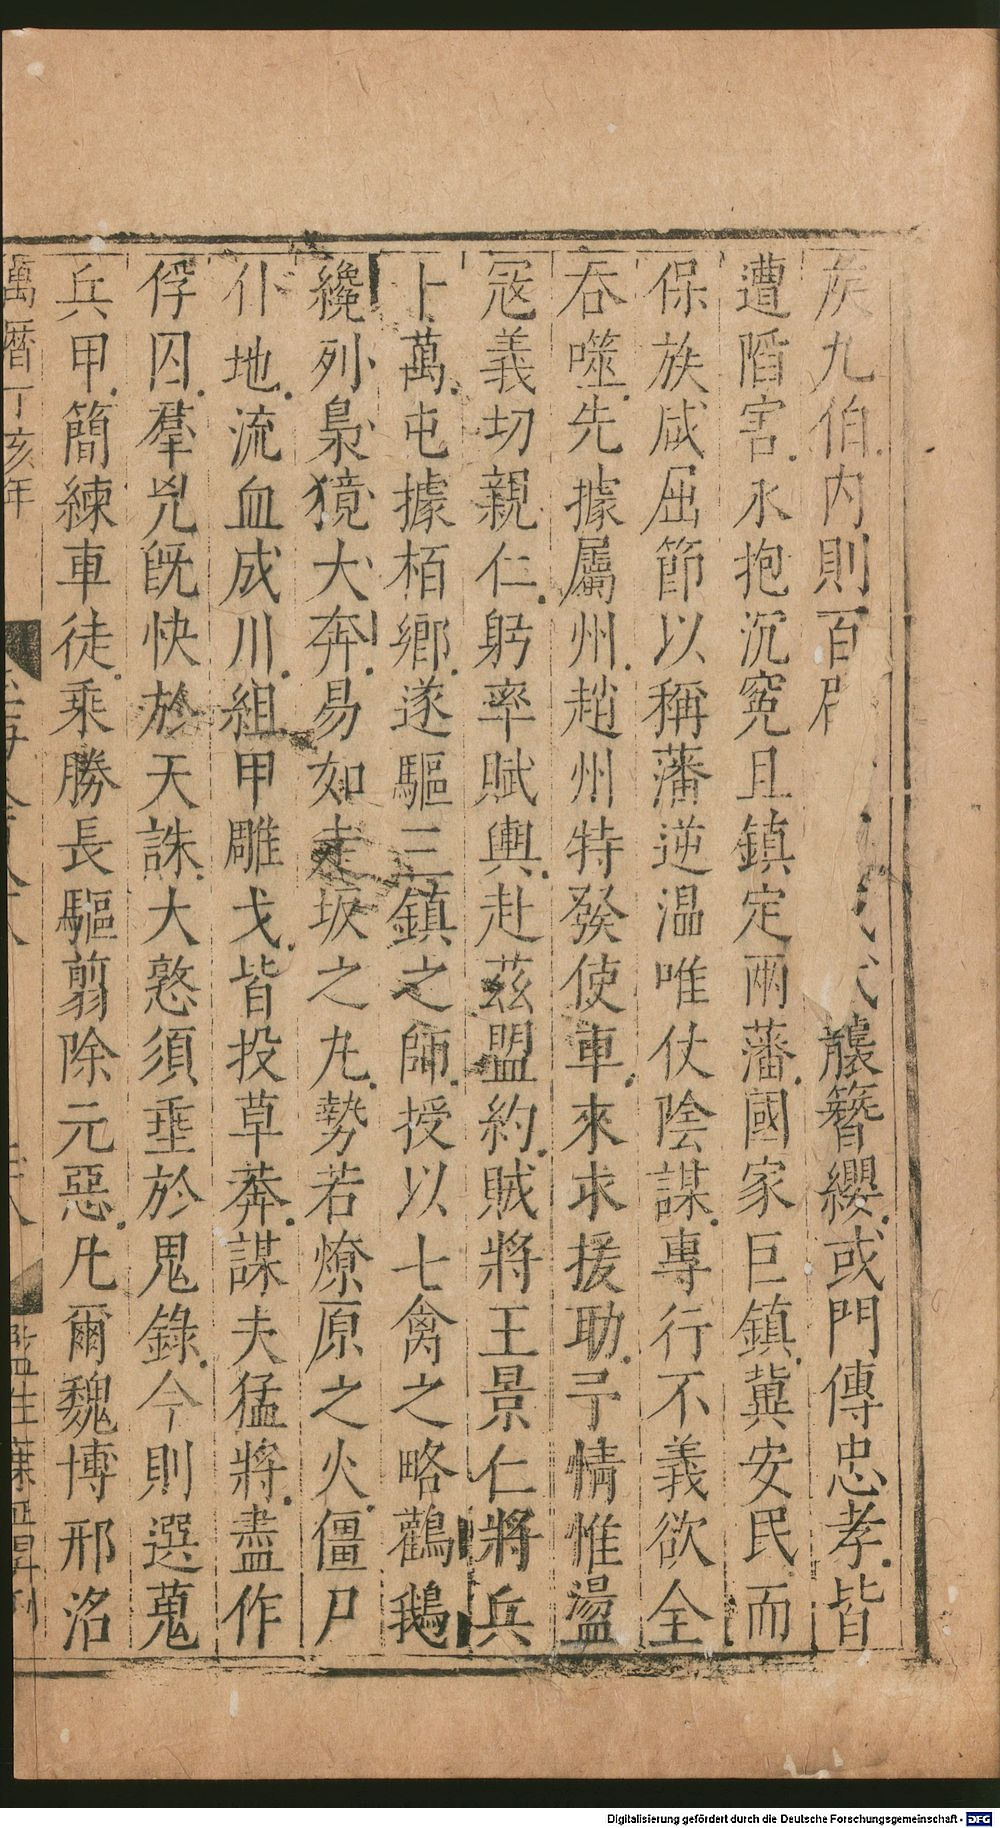 矦九伯内則百
氎簪纓或門傳忠孝皆
遭陷害永抱沉寃且鎮定兩藩國家巨鎮冀安民而
保族咸屈節以稱藩逆温唯仗陰謀專行不義欲全
吞噬先據屬州趙州特發使車來求援助予情惟盪
冦義切親仁躬率賦輿赴茲盟約賊將王景仁將兵
十萬屯據栢鄉遂驅三鎮之師授以七禽之略鸛鵝
纔列梟獍大奔易如走坂之丸勢若燎原之火僵尸
仆地流血成川組甲雕戈皆投草莽謀夫猛將盡作
俘囚羣兇既快於天誅大憝須垂於鬼錄今則選蒐
兵甲簡練車徒乘勝長驅翦除元惡凢爾魏博邢洺
萬曆丁亥年
監生
刋
Digitalisierung gefördert durch die Deutsche Forschungsgemeinschaft - DFG